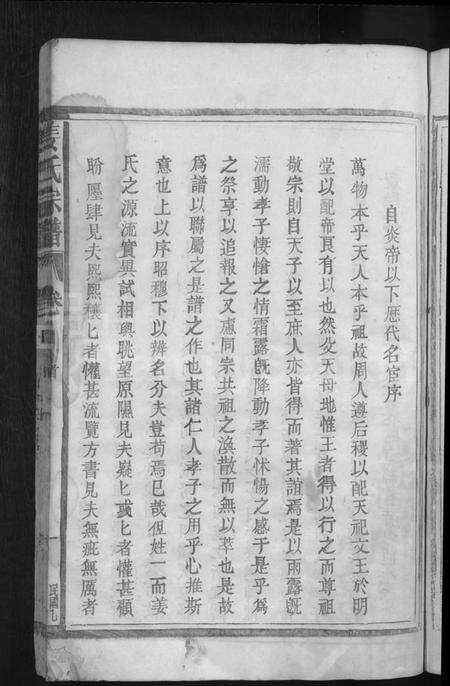 自炎帝以下歷代名宦序
萬物本乎天人本乎祖故周人遵后稷以配天祀文王於明
堂以配帝良有以也然父天母地惟王者得以行之而尊祖
敬宗則自天子以至庶人亦皆得而著其誼焉是以雨露既
濡動孝子悽愴之情霜露既降動孝子怵惕之感于是乎爲
之祭享以追報之又慮同宗共祖之渙散而無以萃也是故
爲譜以聯屬之是譜之作也其諸仁人孝子之用乎心推斯
意也上以序昭穆下以辨名分夫豈苟焉已哉但姓一而姜
氏之源流實異試相與眺望原隰見夫嶷匕彧匕者懽甚顧
盼廛肆見夫熙熙穰匕者懽甚流覽方書見夫無疵無厲者
姜氏宗譜
卷
一